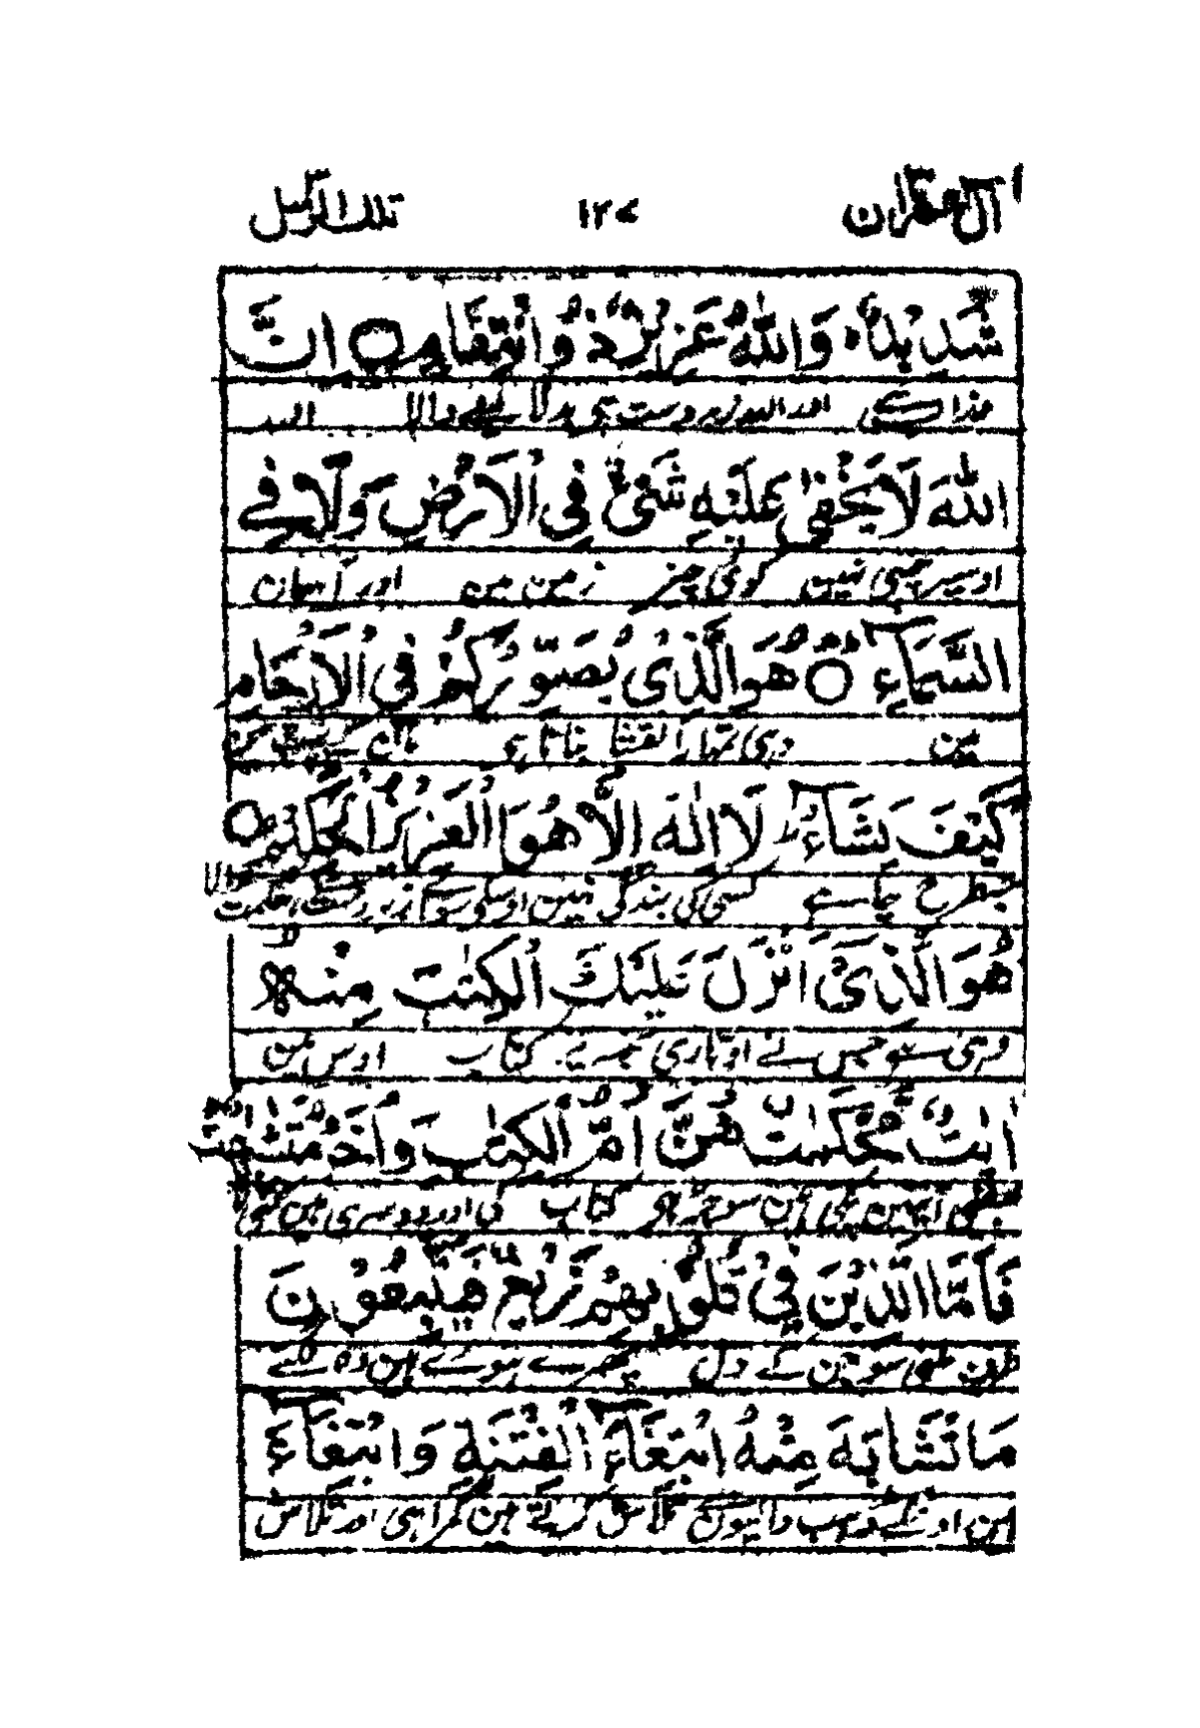 آل عمران ١٢٧ تلك الرسل
شَدِيْدٌ وَاللّٰهُ عَزِيْزٌ ذُوانْتِقَامٍ ○ اِنَّ
اور اللہ زبردست ہی بدلا لینے والا اللہ
اللّٰهَ لَا يَخْفٰى عَلَيْهِ شَىْءٌ فِى الْاَرْضِ وَلَا فِے
اوسپر چھپی نہیں کوئی چیز زمین مین اور آسمان
السَّمَآءِ ○ هُوَ الَّذِىْ يُصَوِّرُكُمْ فِى الْاَرْحَامِ
مین وہی تمہارا نقشا بناتا ہے
كَيْفَ يَشَآءُ لَا اِلٰهَ اِلَّا هُوَ الْعَزِيْزُ الْحَكِيْمُ ○
جسطرح چاہے کسی کی بندگی نہین اوسکے سوائے زبردست ہے حکمت والا
هُوَ الَّذِىْٓ اَنْزَلَ عَلَيْكَ الْكِتٰبَ مِنْهُ
وہی ہے جس نے اوتاری تجھ پر کتاب اوس مین
اٰيٰتٌ مُّحْكَمٰتٌ هُنَّ اُمُّ الْكِتٰبِ وَاُخَرُ مُتَشٰبِهٰتٌ
بعضی آیتین پکی ہین سو جڑ ہو کتاب کی اور دوسری ہین کئی
فَاَمَّا الَّذِيْنَ فِىْ قُلُوْبِهِمْ زَيْغٌ فَيَتَّبِعُوْنَ
طرف ملتی سو جن کے دل پھرے ہوے ہین وہ لگتے
مَا تَشَابَهَ مِنْهُ ابْتِغَآءَ الْفِتْنَةِ وَابْتِغَآءَ
ہین اونکے ڈھب والیون سے تلاش کرتے ہین گمراہی اور تلاش